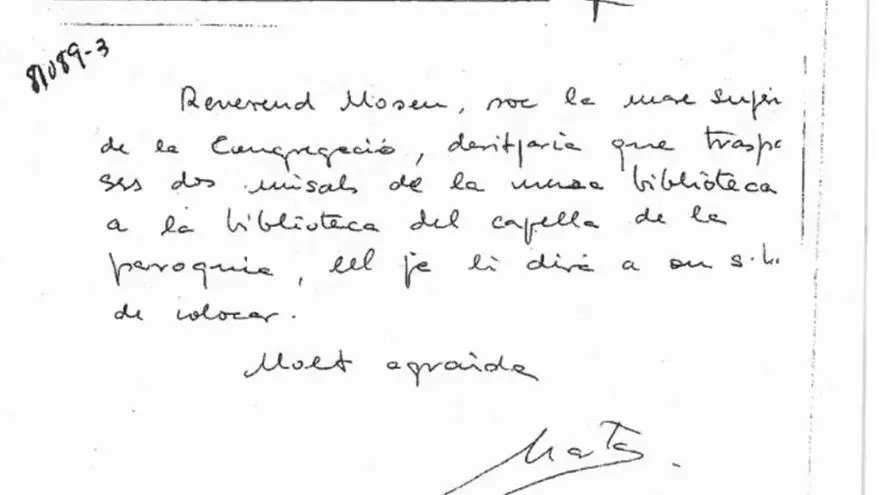 81089-3
Reverend Mosen, soc la mare super
de la Congregació, desitjaria que traspa
ses dos misals de la meva biblioteca
a la biblioteca del capella de la
paroquia, ell ja li dirá a on s.h.
de colocar.
Molt agraida
Marta.